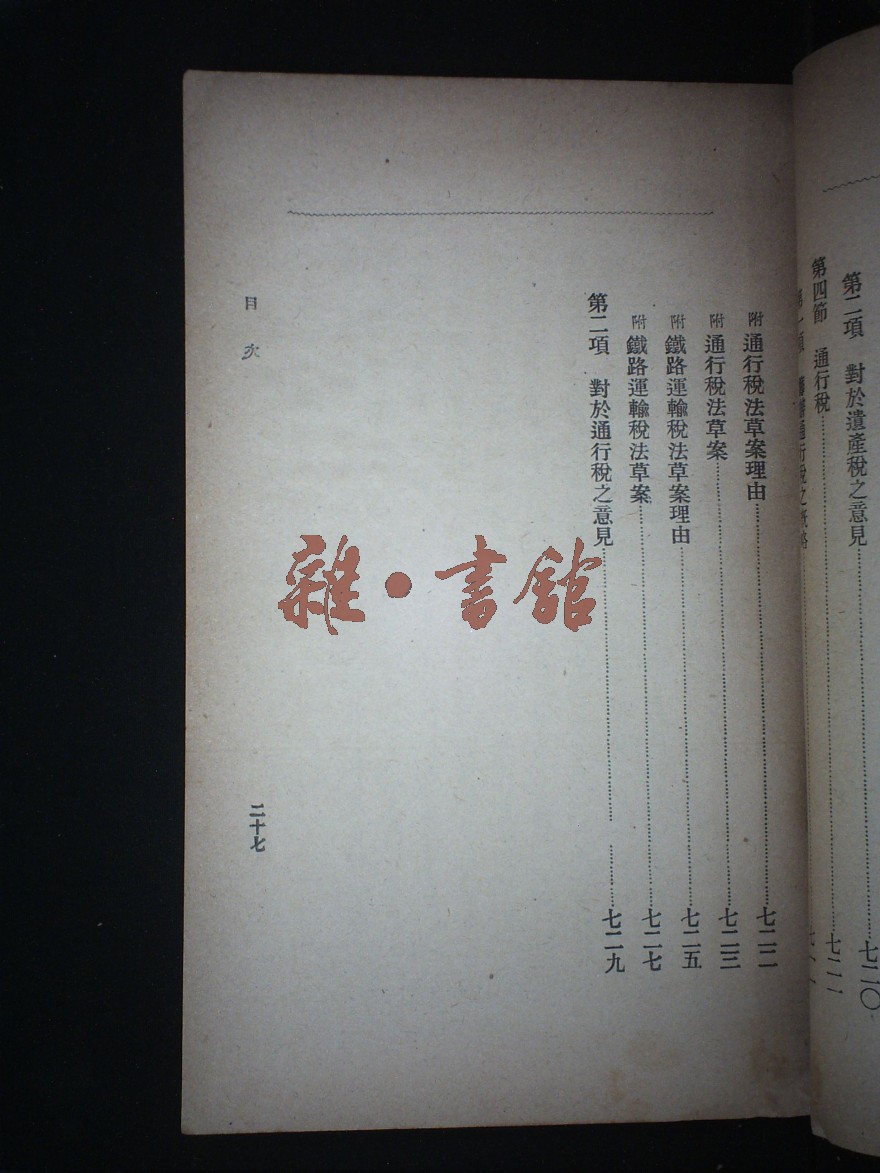 第二項　對於遺產稅之意見…………七二〇
第四節　通行稅…………七二一
通行稅之
附　通行稅法草案理由…………七二二
附　通行稅法草案…………七二三
附　鐵路運輸稅法草案理由…………七二五
附　鐵路運輸稅法草案…………七二七
第二項　對於通行稅之意見…………七二九
目次
二十七
雜•書館